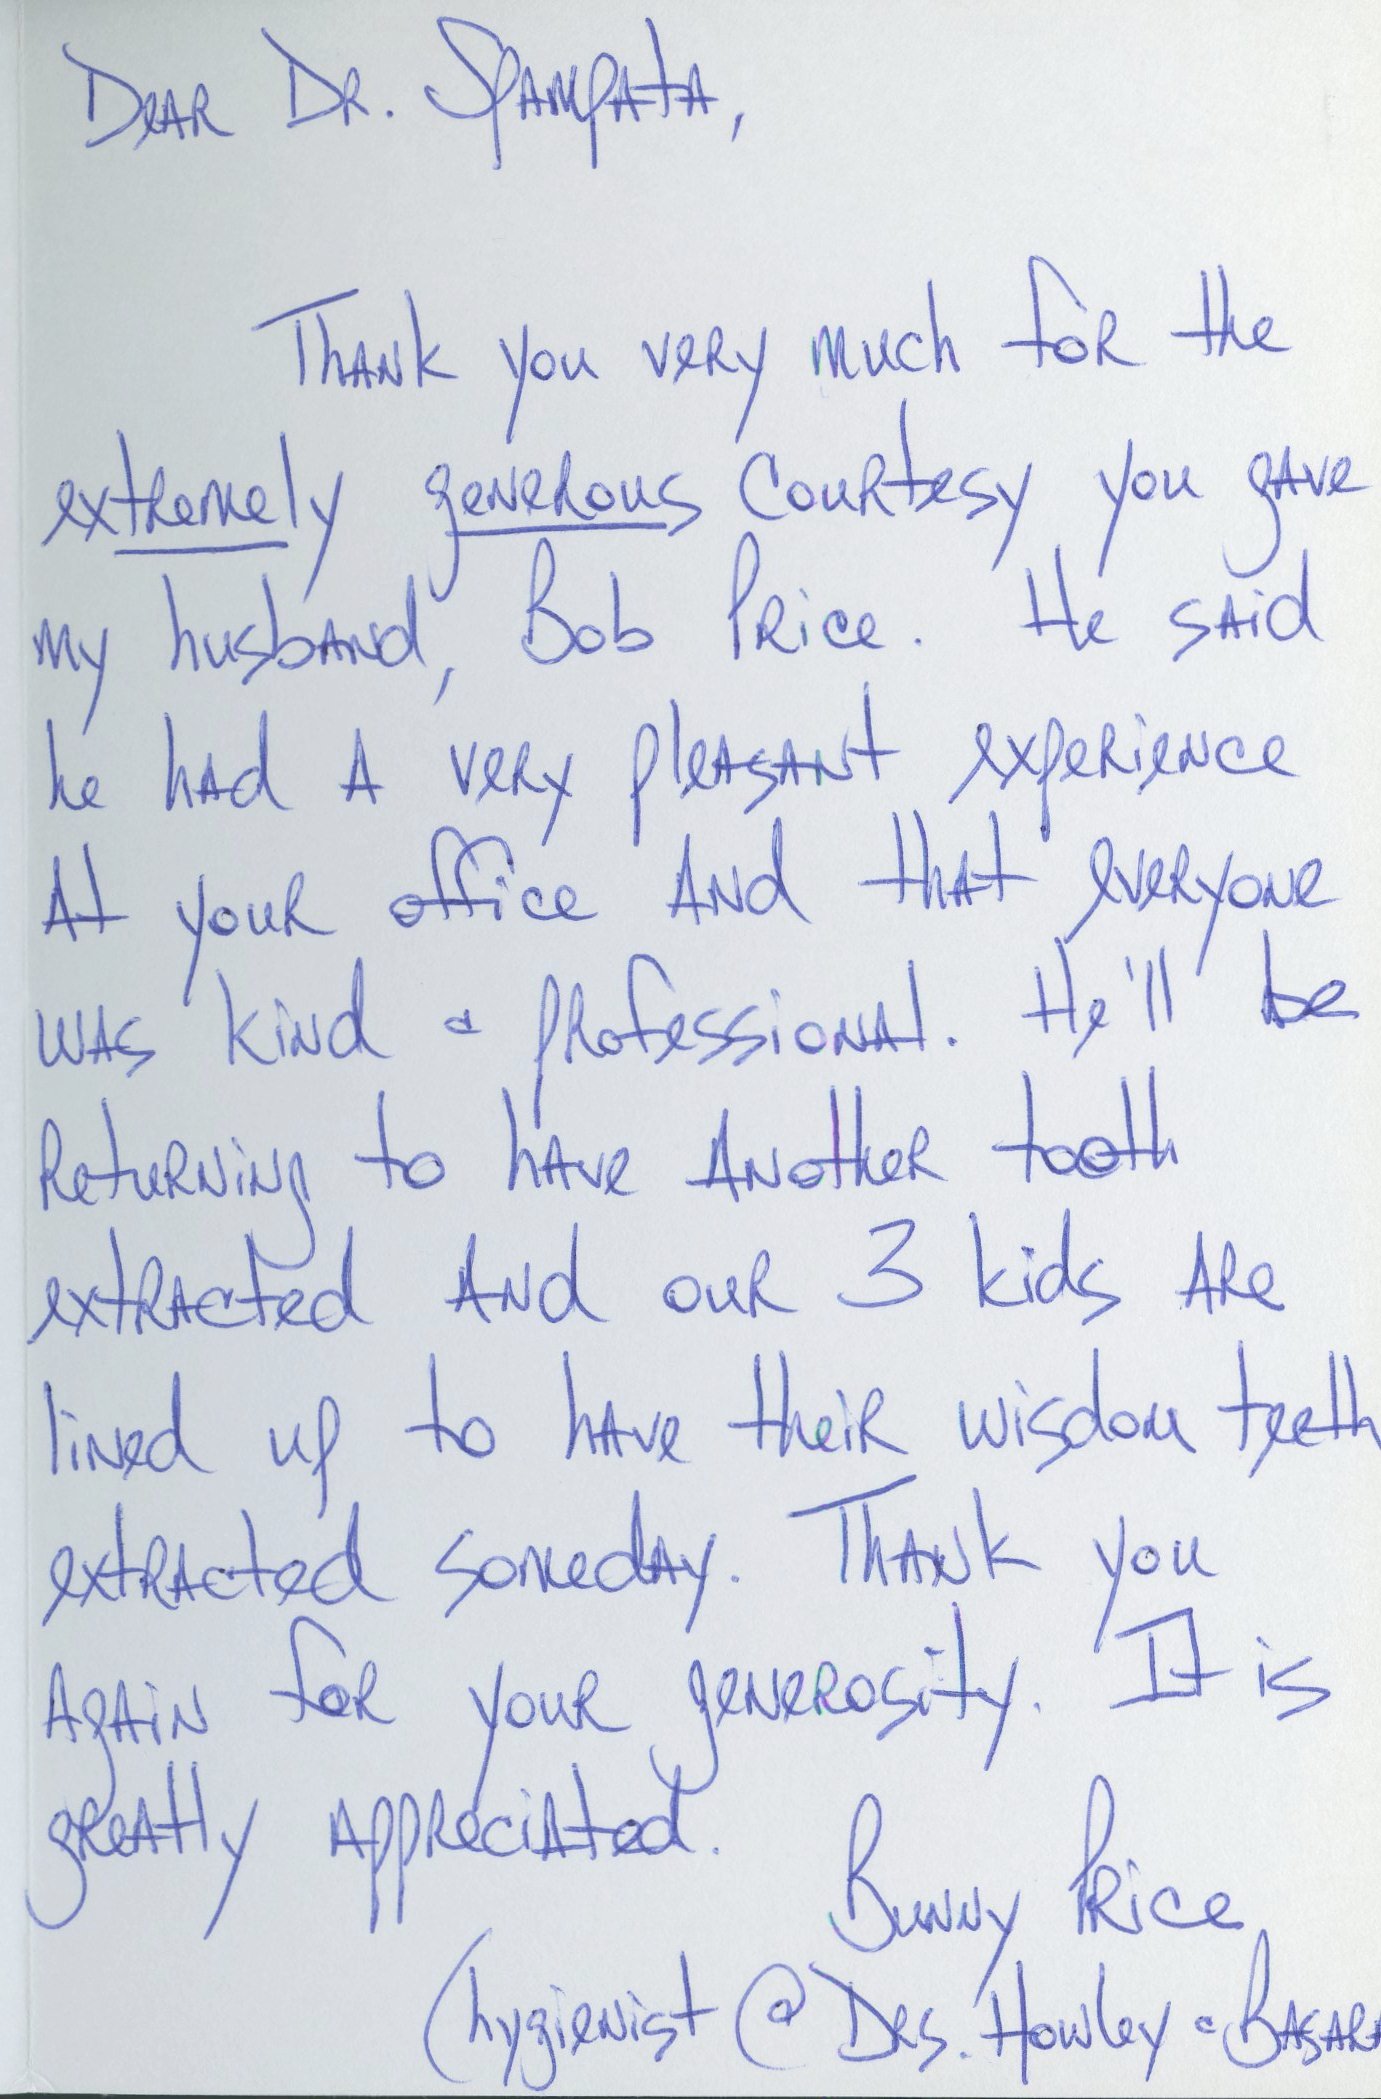 Dear Dr. Spampata,
Thank you very much for the
extremely generous courtesy you gave
my husband, Bob Price. He said
he had a very pleasant experience
at your office and that everyone
was kind & professional. He'll be
returning to have another tooth
extracted and our 3 kids are
lined up to have their wisdom teeth
extracted someday. Thank you
again for your generosity. It is
greatly appreciated.
Bunny Price
(hygienist @ Drs. Howley & Basara